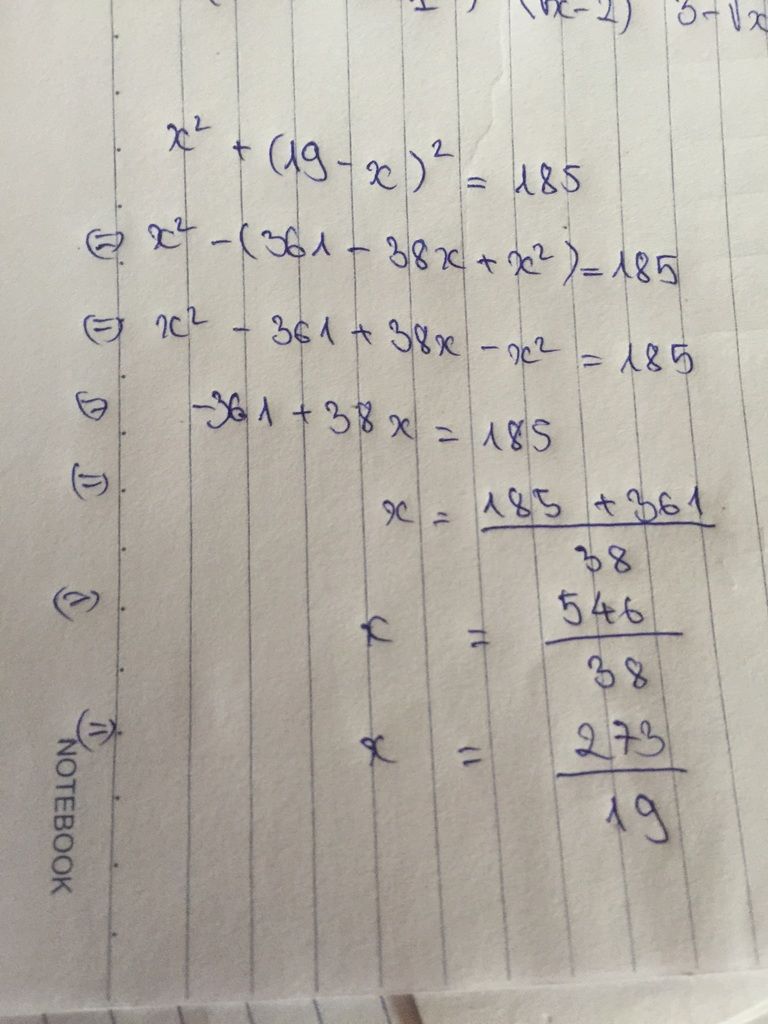 (√x-2) 3-√x
x² + (19 - x)² = 185
(=) x² - (361 - 38x + x²) = 185
(=) x² - 361 + 38x - x² = 185
(=) -361 + 38x = 185
(=) x = 185 + 361 / 38
(=) x = 546 / 38
(=) x = 273 / 19
NOTEBOOK